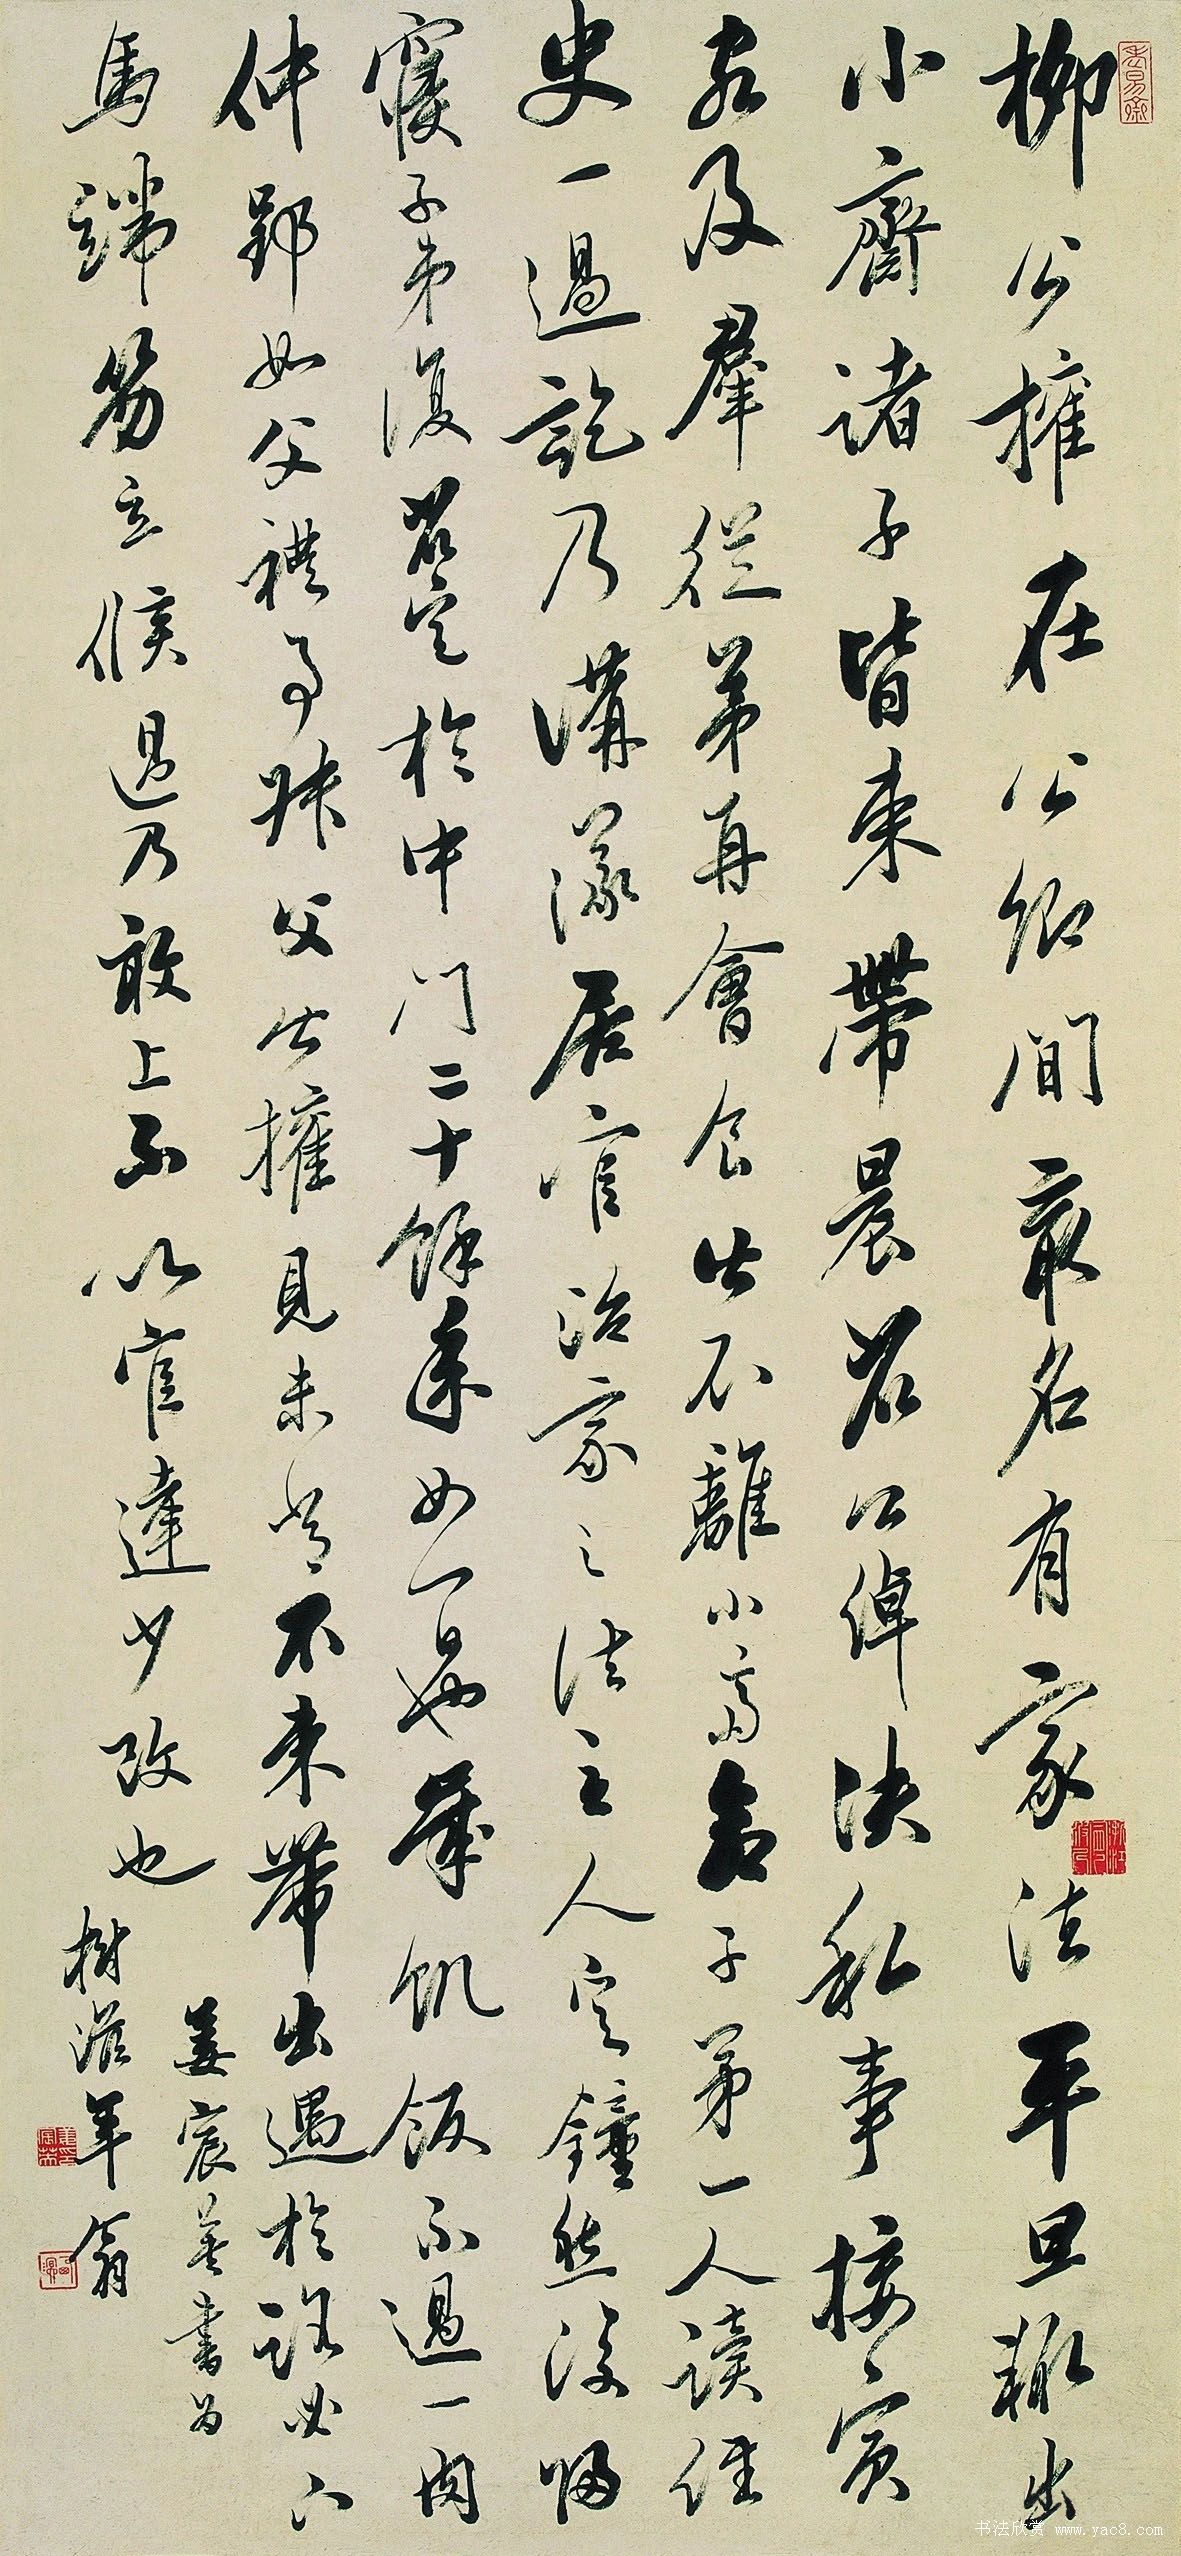 柳公擁在公卿間最名有家法平旦輒出
小齋諸子皆束帶晨昏公倬決私事接賓
客及羣從弟再會食皆不離小齋命子弟一人讀經
史一過訖乃講議居官治家之法至人定鐘然後歸
寢子弟復昏定於中門二十餘年如一日也歲飢飯不過一肉
仲郢如父禮事叔父公擁見未嘗不束帶出遇於路必下
馬端笏立候過乃敢上不以官達少改也
姜宸英書為
樹滋年翁
书法欣赏 www.yac8.com